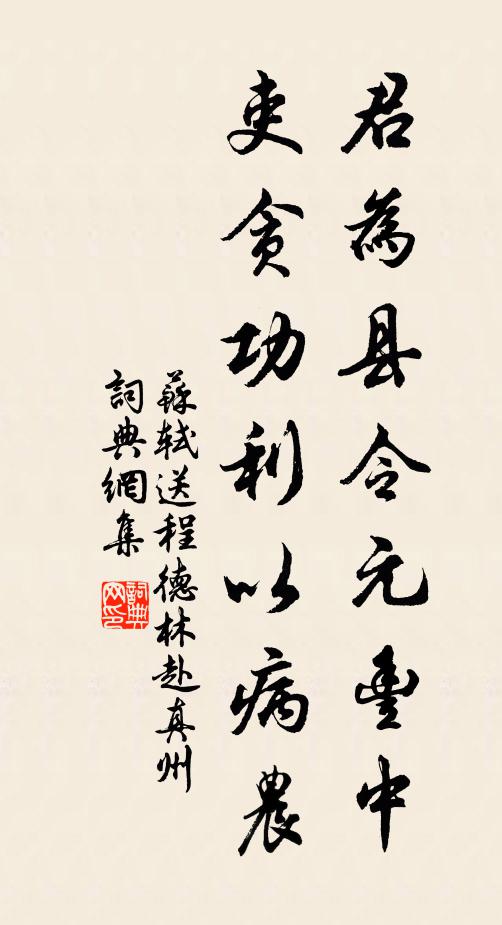 君為县令元豐中
吏贪功利以病農
蘇轼送程德林赴真州
詞典網集
詞典网印